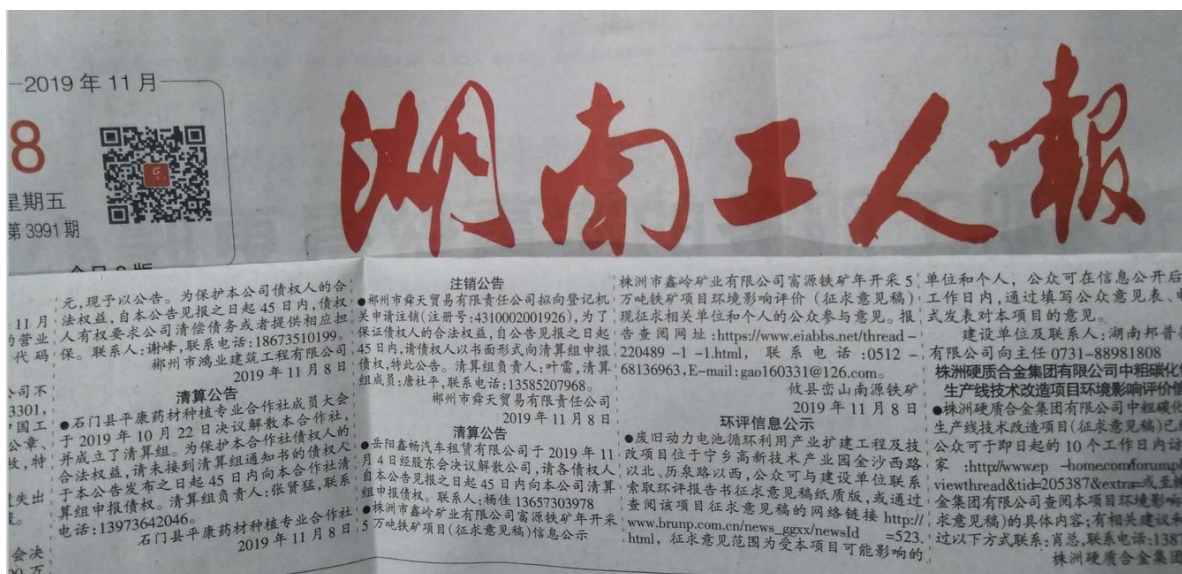 2019年11月
8
星期五
第3991期
湖南工人報
11月
的营业
代码
公司不
3301,
中国工
公章,
特
遗失出
会决
元,现予以公告。为保护本公司债权人的合
法权益,自本公告见报之日起45日内,债权
人有权要求公司清偿债务或者提供相应担
保。联系人:谢峰,联系电话:18673510199。
郴州市鸿业建筑工程有限公司
2019年11月8日
清算公告
●石门县平康药材种植专业合作社成员大会
于2019年10月22日决议解散本合作社,
并成立了清算组。为保护本合作社债权人的
合法权益,请未接到清算组通知书的债权人
于本公告发布之日起45日内向本合作社清
算组申报债权。清算组负责人:张贤猛,联系
电话:13973642046。
石门县平康药材种植专业合作社
2019年11月8日
注销公告
●郴州市舜天贸易有限责任公司拟向登记机
关申请注销(注册号:4310002001926),为了
保证债权人的合法权益,自公告见报之日起
45日内,请债权人以书面形式向清算组申报
债权,特此公告。清算组负责人:叶雷,清算
组成员:唐社平,联系电话:13585207968。
郴州市舜天贸易有限责任公司
2019年11月8日
清算公告
●岳阳鑫畅汽车租赁有限公司于2019年11
月4日经股东会决议解散公司,请各债权人
自本公告见报之日起45日内向本公司清算
组申报债权。联系人:杨佳13657303978
●株洲市鑫岭矿业有限公司富源铁矿年开采
5万吨铁矿项目(征求意见稿)信息公示
株洲市鑫岭矿业有限公司富源铁矿年开采5
万吨铁矿项目环境影响评价(征求意见稿)
现征求相关单位和个人的公众参与意见。报
告查阅网址:https://www.eiabbs.net/thread-
220489-1-1.html,联系电话:0512-
68136963,E-mail:gao160331@126.com。
攸县峦山南源铁矿
2019年11月8日
环评信息公示
●废旧动力电池循环利用产业扩建工程及技
改项目位于宁乡高新技术产业园金沙西路
以北、历泉路以西,公众可与建设单位联系
索取环评报告书征求意见稿纸质版,或通过
查阅该项目征求意见稿的网络链接http://
www.brunp.com.cn/news_ggxx/newsId=523.
html,征求意见范围为受本项目可能影响的
单位和个人,公众可在信息公开后
工作日内,通过填写公众意见表、电
式发表对本项目的意见。
建设单位及联系人:湖南邦普
有限公司向主任0731-88981808
株洲硬质合金集团有限公司中粗碳化
生产线技术改造项目环境影响评价信
●株洲硬质合金集团有限公司中粗碳化
生产线技术改造项目(征求意见稿)已
公众可于即日起的10个工作日内访
家:http//www.ep-homecom/forump
viewthread&tid=205387&extra=或至株
金集团有限公司查阅本项目环境影响
求意见稿)的具体内容;有相关建议和
过以下方式联系:肖总,联系电话:1387
株洲硬质合金集团